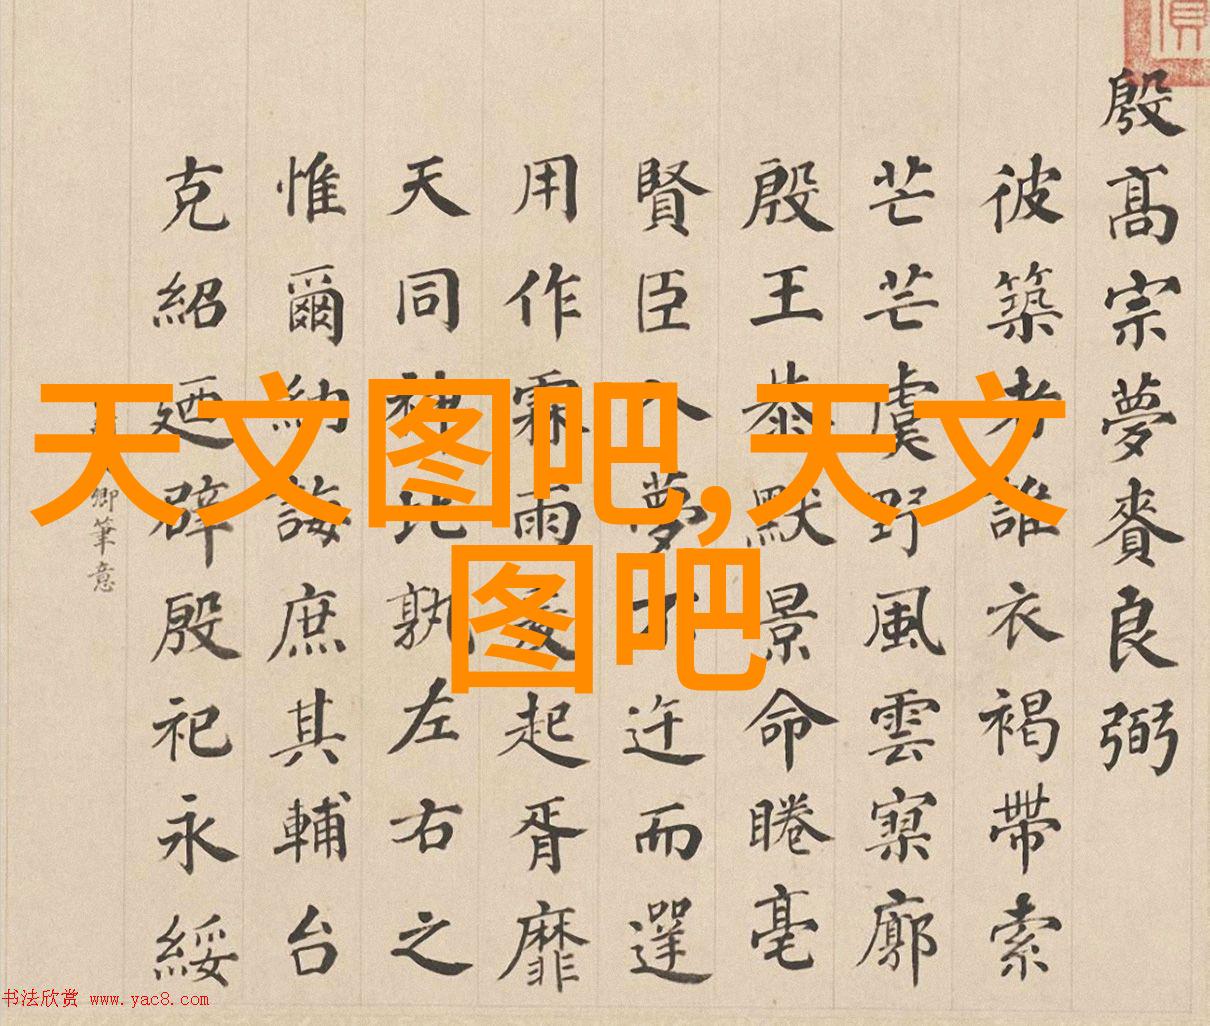 殷髙宗夢賚良弼
彼築者誰衣褐帶索
芒芒虞野風雲寥廓
殷王恭默景命睠亳
賢臣入夢不迕而遻
用作霖雨爰起胥靡
天同神比孰左右之
惟爾納誨庶其輔台
克紹廼辟殷祀永綏
卿筆意
天文图吧,天文
图吧
书法欣赏 www.yac8.com